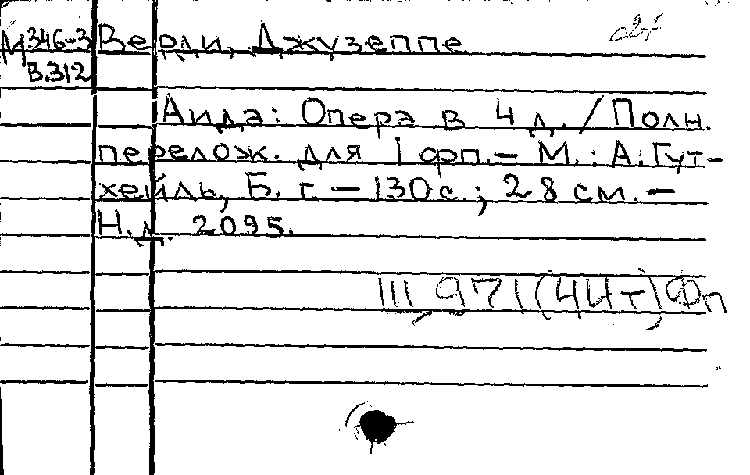 М346-3 Верди, Джузеппе
В.312
Аида: Опера в 4 д. / Полн.
перелож. для 1 фп. – М.: А. Гут-
хейль, Б. г. – 130 с.; 28 см. –
Н.д. 2095.
III, 971(4Ит), Фп